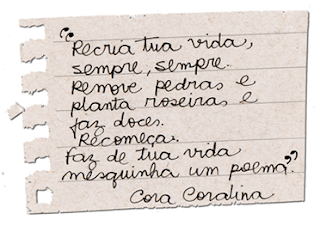 “Recria tua vida,
sempre, sempre.
Remove pedras e
planta roseiras e
faz doces.
Recomeça.
Faz de tua vida
mesquinha um poema”
Cora Coralina